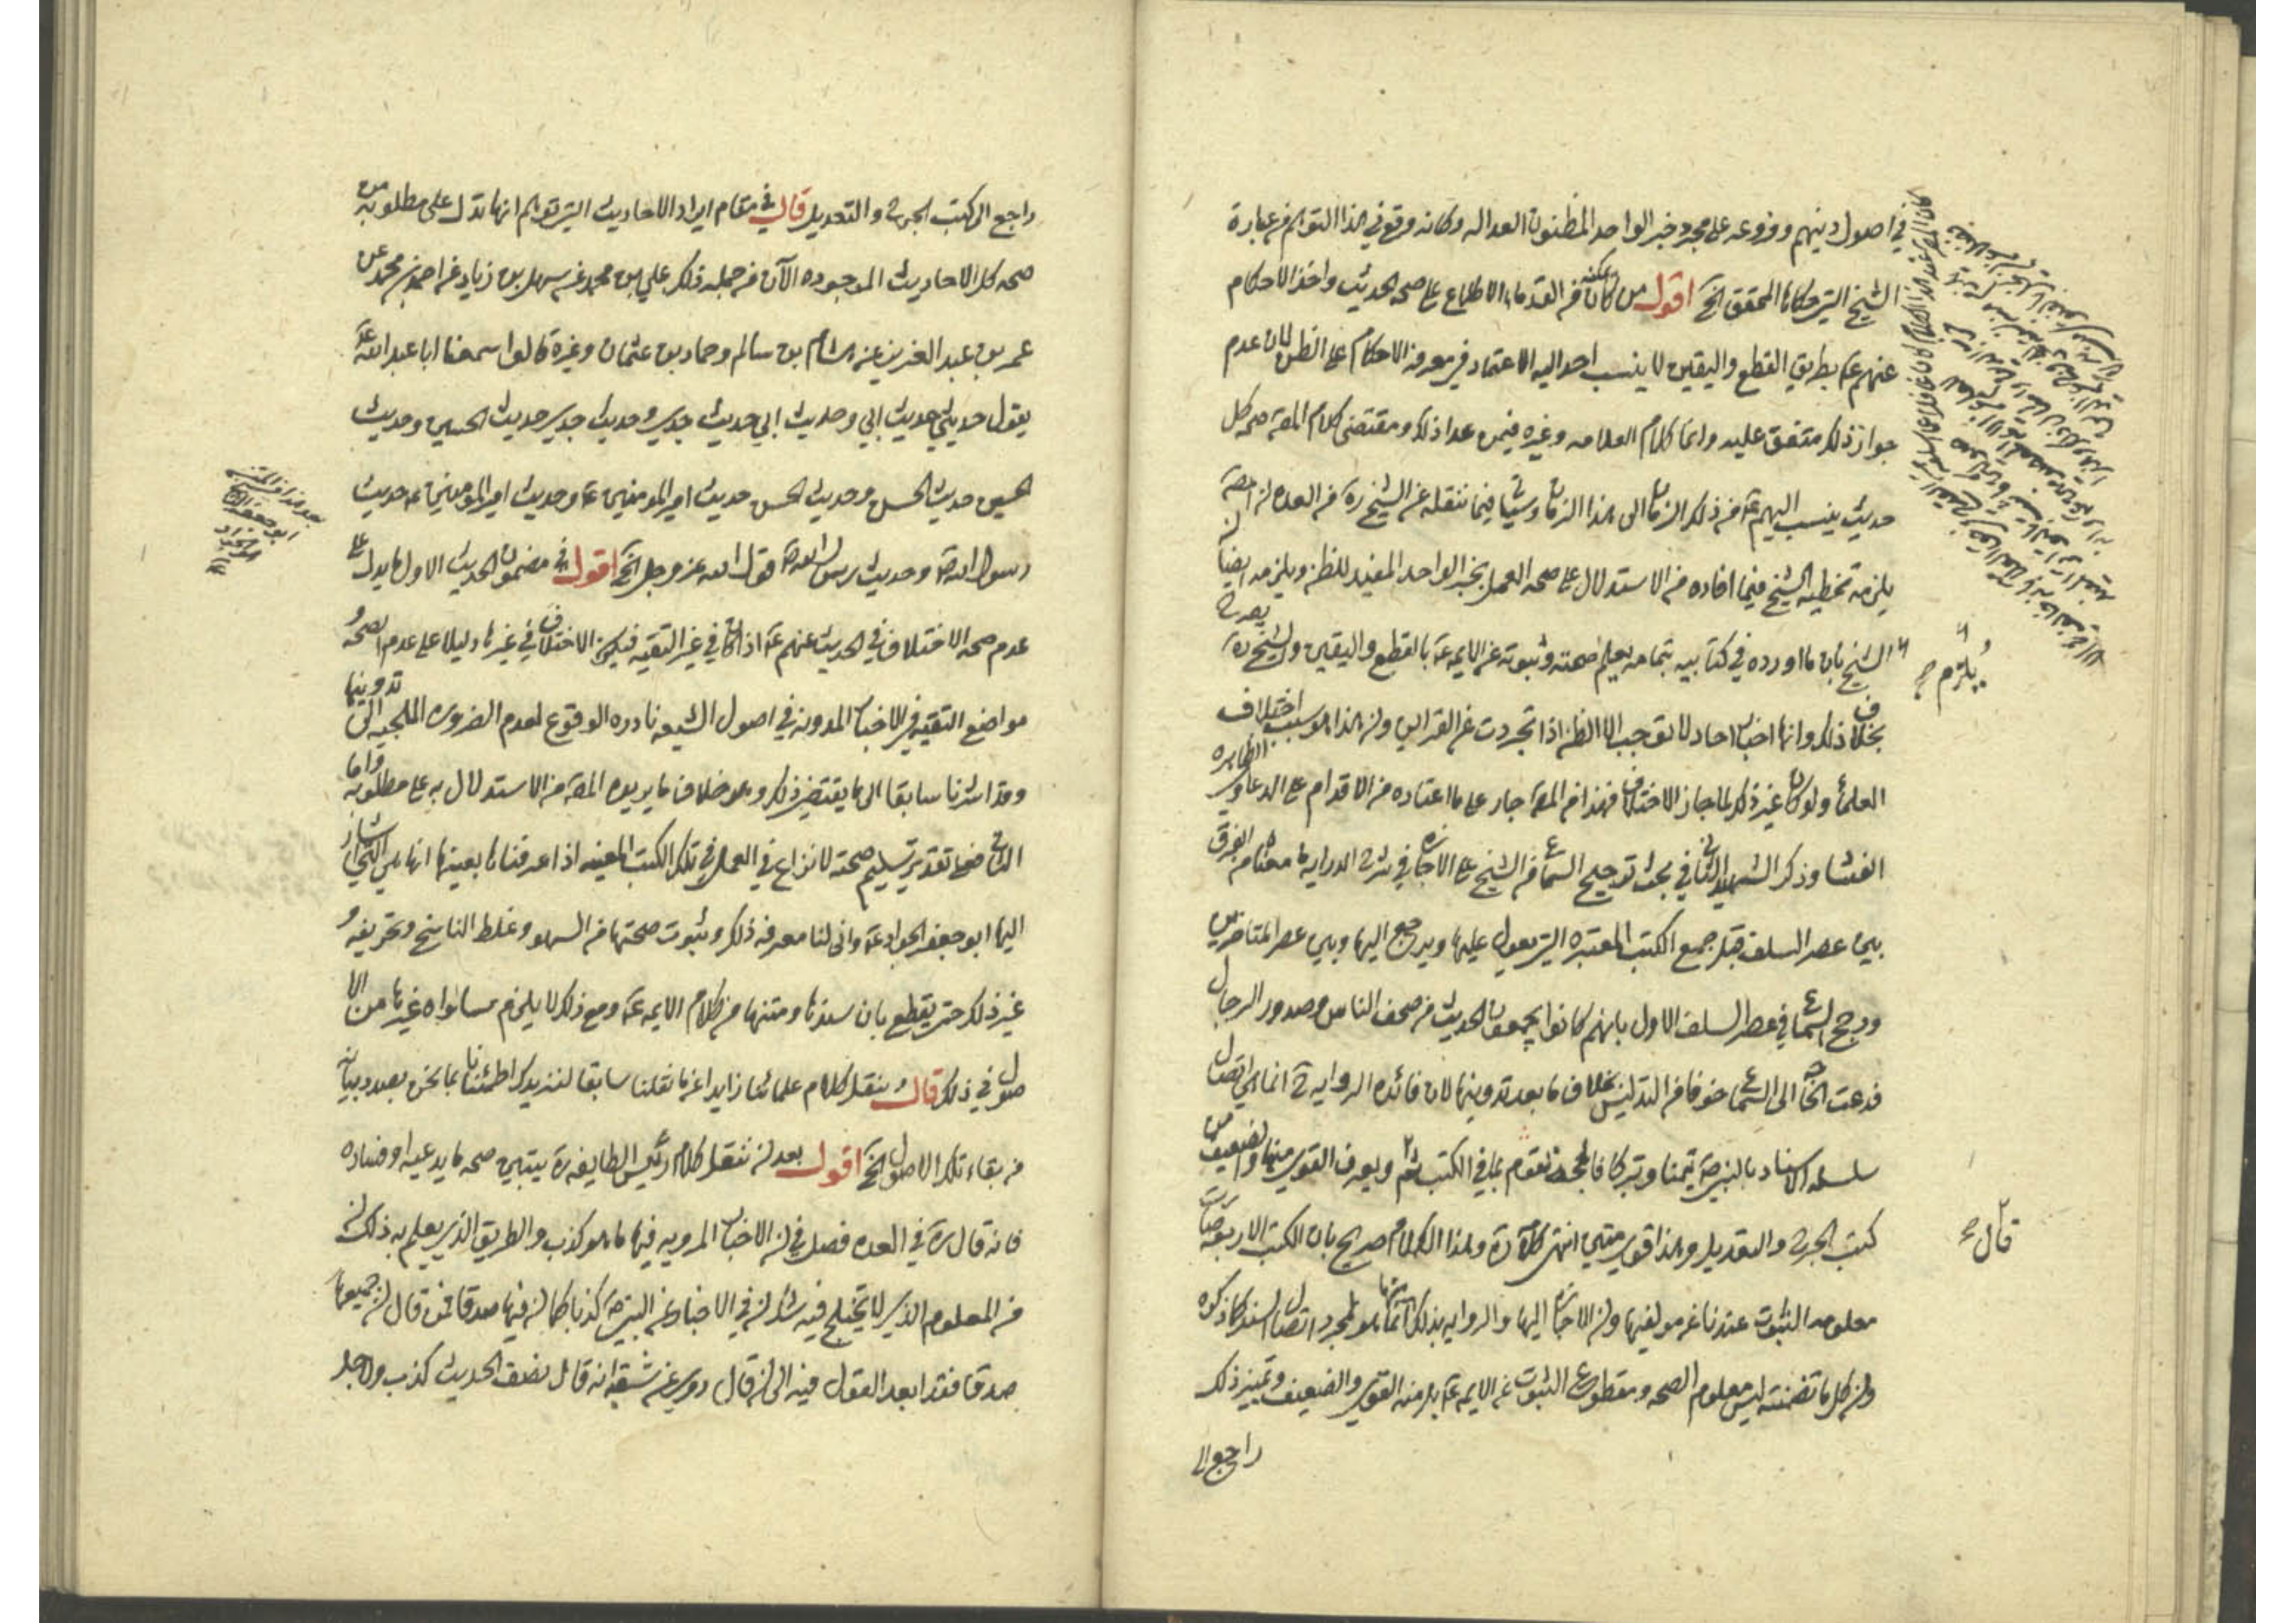 في اصول دينهم وفروعه على مجرد خبر الواحد المظنون العداله وكانه وقع في هذا التوهم من عبارة
الشيخ التي حكاها المحقق الخ اقول من كان يمكنه من القدماء الاطلاع على صحة الحديث واخذ الاحكام
عنهم ع بطريق القطع واليقين لا ينسب احد اليه الاعتماد في معرفة الاحكام على الظن لان عدم
جواز ذلك متفق عليه وانما كلام العلامه وغيره فيمن عدا ذلك ومقتضى كلام المص صحه كل
حديث ينسب اليهم ع من ذلك الزمان الى هذا الزمان وسياتي فيما ننقله عن الشيخ ره في العده ان المص
يلزمه تخطيه الشيخ فيما افاده من الاستدلال على صحه العمل بخبر الواحد المفيد للظن ويلزمه ايضا ان
الشيخ بان ما اورده في كتابيه بتمامه يعلم صحته وثبوته عن الايمه ع بالقطع واليقين والشيخ ره يصرح
بخلاف ذلك وانها اخبار احاد لا توجب الا الظن اذا تجردت عن القراين وان هذا هو سبب اختلاف
العلماء ولو كان غير ذلك لما جاز الاختلاف فهذا من المص جار على ما اعتاده من الاقدام على الدعاوي الظاهره
الفساد وذكر الشهيد الثاني في بحث ترجيح السماع من الشيخ على الاجازه في شرح الدرايه ما معناه الفرق
بين عصر السلف قبل جمع الكتب المعتبره التي يعول عليها ويرجع اليها وبين عصر المتاخرين
ورجح السماع في عصر السلف الاول بانهم كانوا يجمعون الحديث من صحف الناس وصدور الرجال
فدعت الحاجه الى السماع خوفا من التدليس بخلاف ما بعد تدوينها لان فائده الروايه ح انما هي اتصال
سلسله الاسناد بالنبي ص تيمنا وتبركا فالحجه تقوم بما في الكتب ويعرف القوي منها والضعيف من
كتب الجرح والتعديل وهذا قوي متين انتهى كلامه ره وهذا الكلام صريح بان الكتب الاربعه صارت
معلومه الثبوت عندنا عن مولفيها وان الاجازه اليها والروايه بذلك انما هو لمجرد اتصال السند كما ذكره
وان كل ما تضمنته ليس معلوم الصحه ومقطوع الثبوت عن الايمه ع بل منه القوي والضعيف وتمييز ذلك
راجع الى
يلزم
قال
راجع الى كتب الجرح والتعديل قال في مقام ايراد الاحاديث التي توهم انها تدل على مطلوبه من
صحه كل الاحاديث الموجوده الآن من جمله ذلك علي بن محمد عن سهل بن زياد عن احمد بن محمد عن
عمر بن عبد العزيز عن هشام بن سالم وحماد بن عثمان وغيره قالوا سمعنا ابا عبد الله ع
يقول حديثي حديث ابي وحديث ابي حديث جدي وحديث جدي حديث الحسين وحديث
الحسين حديث الحسن وحديث الحسن حديث امير المومنين ع وحديث امير المومنين ع حديث
رسول الله ص وحديث رسول الله ص قول الله عز وجل الخ اقول في مضمون الحديث الاول ما يدل على
عدم صحه الاختلاف في الحديث عنهم ع اذا كان في غير التقيه فيكون الاختلاف في غيرها دليلا على عدم الصحه و
مواضع التقيه في الاخبار المدونه في اصول الشيعه نادره الوقوع لعدم الضروره الملجيه الى تدوينها
وقد اشرنا سابقا الى ما يقتضي ذلك وهو خلاف ما يريده المص من الاستدلال به على مطلوبه واما
الثاني فعلى تقدير تسليم صحته لا نزاع في العمل في تلك الكتب المعينه اذا عرفناها بعينها انها هي التي اشار
اليها ابو جعفر الجواد ع وانى لنا معرفه ذلك وثبوت صحتها من السهو وغلط الناسخ وتحريفه و
غير ذلك حتى يقطع بان سندها ومتنها من كلام الايمه ع ومع ذلك لا يلزم مساواه غيرها من الا
صول في ذلك قال وننقل كلام علمائنا زايدا عن ما نقلنا سابقا لنزيدك اطمئنانا بما نحن بصدد بيانه
من بقاء تلك الاصول الخ اقول بعد ان ننقل كلام رئيس الطايفه ره يتبين صحه ما يدعيه او فساده
فانه قال ره في العده فصل في ان الاخبار المرويه فيها ما هو كذب والطريق الذي يعلم به ذلك ان
من المعلوم الذي لا يتخلج فيه شك ان في الاخبار عن النبي ص كذبا كما ان فيها صدقا فمن قال ان جميعها
صدق فقد ابعد القول فيه الى ان قال روي عن شعبه انه قال نصف الحديث كذب ولاجل